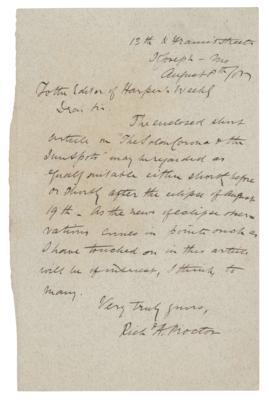 13th & Francis Streets
St Joseph – Mo
August 8th /87
To the Editor of Harper's Weekly
Dear Sir
The enclosed short
article on "The Solar Corona & the
Sun Spots" may be regarded as
equally suitable either shortly before
or shortly after the eclipse of August
19th – As the news of eclipse obser-
vations comes in points such as
I have touched on in this article
will be of interest, I think, to
many.
Very truly yours,
Rich A. Proctor